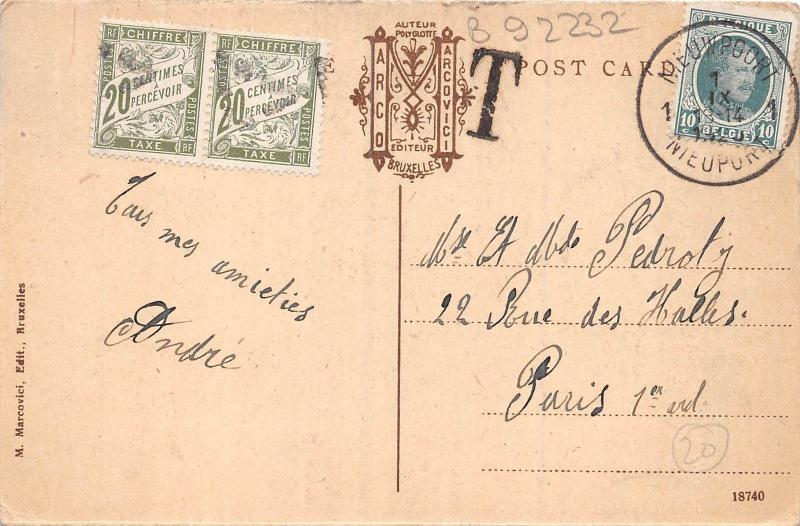 B 92232
T
POST CARD
AUTEUR
POLYGLOTTE
ARCO
MARCOVICI
EDITEUR
BRUXELLES
RF CHIFFRE
20 CENTIMES
À PERCEVOIR
POSTES
TAXE RF
RF CHIFFRE
20 CENTIMES
À PERCEVOIR
POSTES
TAXE RF
BELGIQUE
10 BELGIE 10
NIEUWPOORT
1
1 1
NIEUPORT
Tous mes amitiés
André
Mr Et Mde Pedroty
22 Rue des Halles.
Paris 1er ard.
20
M. Marcovici, Edit., Bruxelles
18740